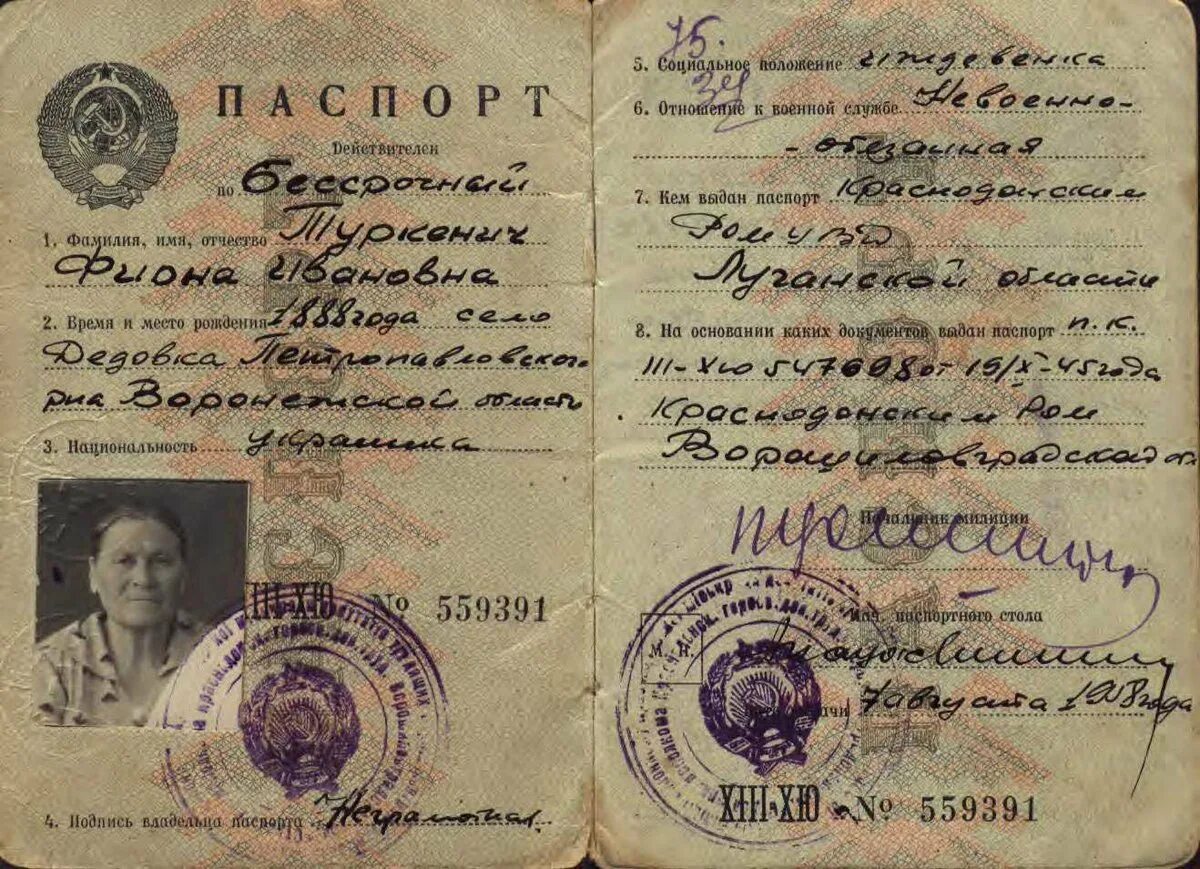 ПАСПОРТ
Действителен
по Бессрочный
1. Фамилия, имя, отчество Туркенич
Фиона Ивановна
2. Время и место рождения 1888 года село
Дедовка Петропавловского
р-на Воронежской области
3. Национальность украинка
III-ХЮ № 559391
4. Подпись владельца паспорта Неграмотная.
75.
34
5. Социальное положение иждевенка
6. Отношение к военной службе Невоенно-
- обезанная
7. Кем выдан паспорт Краснодонским
Ром УВД
Луганской области
8. На основании каких документов выдан паспорт п.к.
III-ХЮ 547698 от 19/X-45 года
Краснодонским Ром
Ворошиловградской о
Начальник милиции
Нач. паспортного стола
М. П.
7 августа 1958 года
XIII-ХЮ № 559391